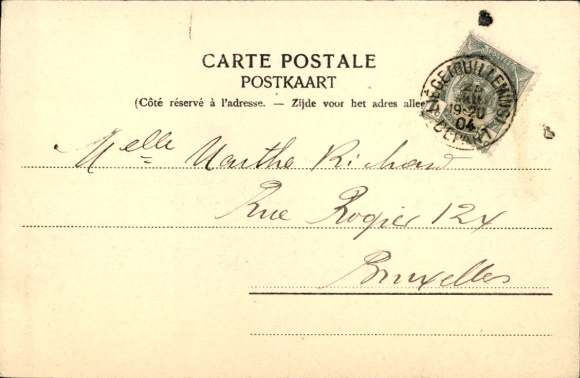 CARTE POSTALE
POSTKAART
(Côté réservé à l'adresse. — Zijde voor het adres allee
LIÉGE (GUILLEMINS)
19-20
04
DÉPART
Melle Marthe Richard
Rue Rogier 124
Bruxelles